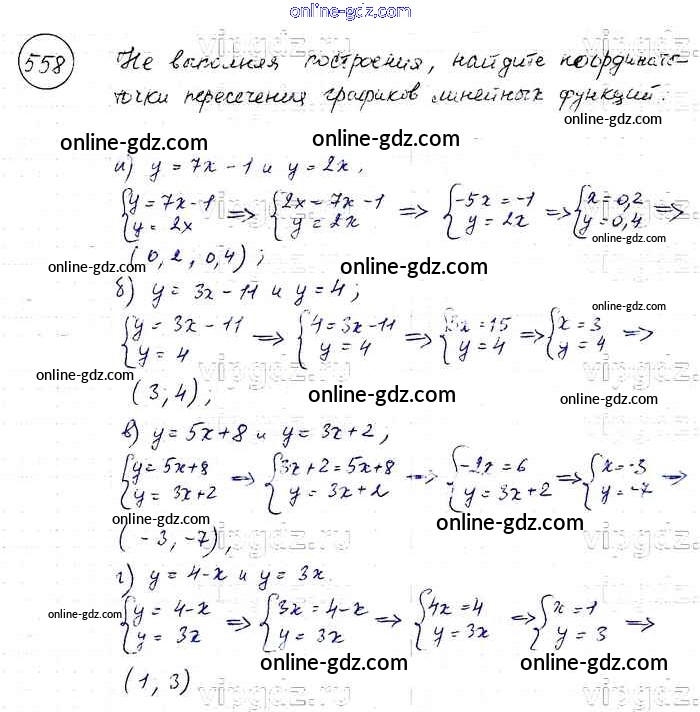 online-gdz.com
558 Не выполняя построения, найдите координаты
точки пересечения графиков линейных функций.
online-gdz.com online-gdz.com online-gdz.com
а) y = 7x - 1 и y = 2x,
{y = 7x - 1 => {2x = 7x - 1 => {-5x = -1 => {x = 0,2 =>
{y = 2x {y = 2x {y = 2x {y = 0,4
online-gdz.com
(0,2, 0,4);
online-gdz.com online-gdz.com
б) y = 3x - 11 и y = 4;
online-gdz.com
{y = 3x - 11 => {4 = 3x - 11 => {3x = 15 => {x = 3 =>
{y = 4 {y = 4 {y = 4 {y = 4
online-gdz.com
(3, 4);
online-gdz.com online-gdz.com
в) y = 5x + 8 и y = 3x + 2,
online-gdz.com
{y = 5x + 8 => {3x + 2 = 5x + 8 => {-2x = 6 => {x = -3 =>
{y = 3x + 2 {y = 3x + 2 {y = 3x + 2 {y = -7
online-gdz.com online-gdz.com
(-3, -7),
г) y = 4 - x и y = 3x.
online-gdz.com
{y = 4 - x => {3x = 4 - x => {4x = 4 => {x = 1 =>
{y = 3x {y = 3x {y = 3x {y = 3
online-gdz.com online-gdz.com
(1, 3)
online-gdz.com